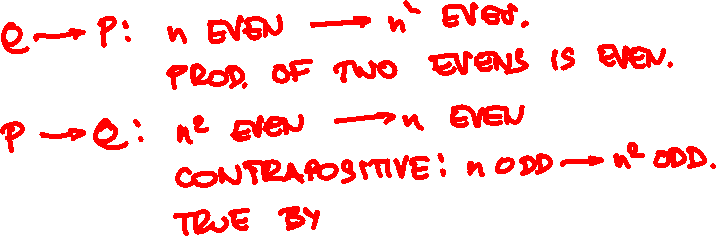 Q → P: n EVEN → n² EVEN.
PROD. OF TWO EVENS IS EVEN.
P → Q: n² EVEN → n EVEN
CONTRAPOSITIVE: n ODD → n² ODD.
TRUE BY